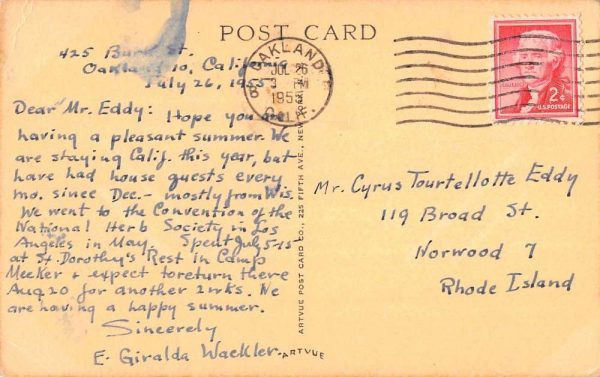 POST CARD
425 St.
Oakland 10, California
July 26, 1955
Dear Mr. Eddy: Hope you are
having a pleasant summer. We
are staying Calif. this year, but
have had house guests every
mo. since Dec. - mostly from Wis.
We went to the Convention of the
National Herb Society in Los
Angeles in May. Spent July 5-15
at St. Dorothy's Rest in Camp
Meeker & expect to return there
Aug 20 for another 2 wks. We
are having a happy summer.
Sincerely
E. Giralda Wackler
OAKLAND
JUL 26
PM
1955
CALIF.
2¢
U.S. POSTAGE
ARTVUE POST CARD CO., 225 FIFTH AVE., NEW YORK
ARTVUE
Mr. Cyrus Tourtellotte Eddy
119 Broad St.
Norwood 7
Rhode Island